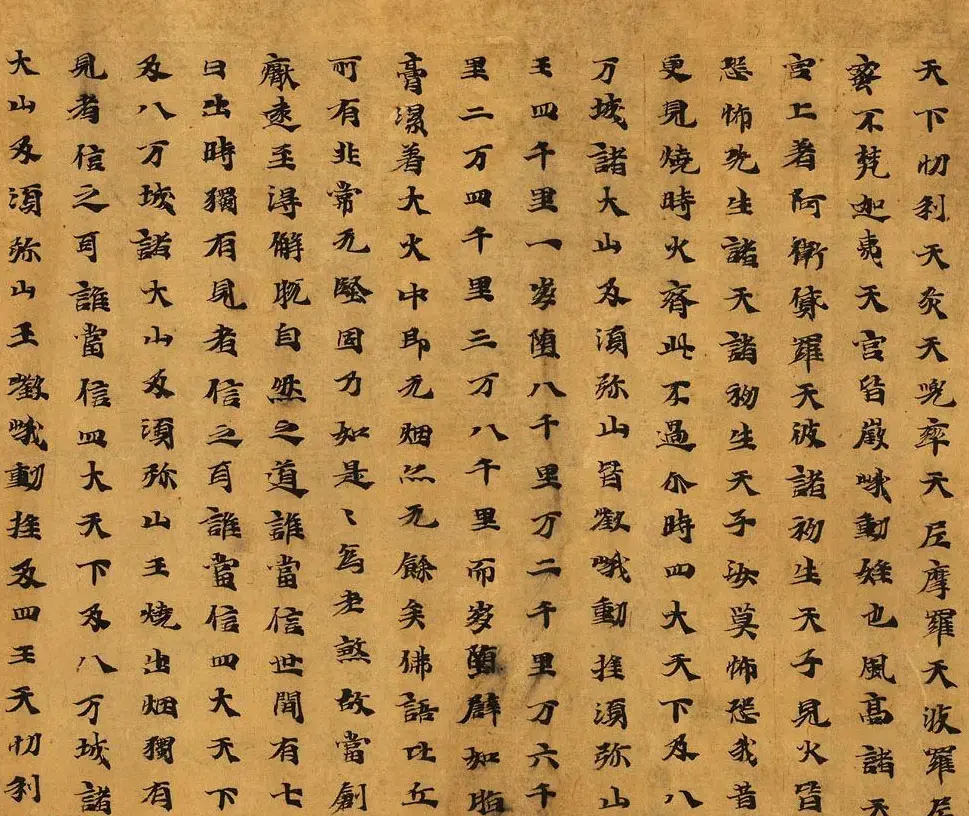 天下忉利天炎天兜率天尼摩羅天波羅尼
蜜不梵迦夷天宮皆峨動也風高諸天
宮上著阿衛貨羅天彼諸初生天子見火皆
恐怖先生諸天諸初生天子汝莫怖恐我昔
更見燒時火齊此不過尒時四大天下及八
万城諸大山及須弥山皆峨動挃須弥山
王四千里一墮八千里万二千里万六千
里二万四千里三万八千里而墮辟如脂
膏着大火中即无烟炁无餘矣佛語比丘
所有非常无堅固乃如是〻煞故當創
至得解脱自然之道誰當信世間有七
日出時獨有見者信之耳誰當信四大天下
及八万城諸大山及須弥山王燒出烟獨有
見者信之耳誰當信四大天下及八万城諸
大山及須弥山王峨動挃及四王天忉利